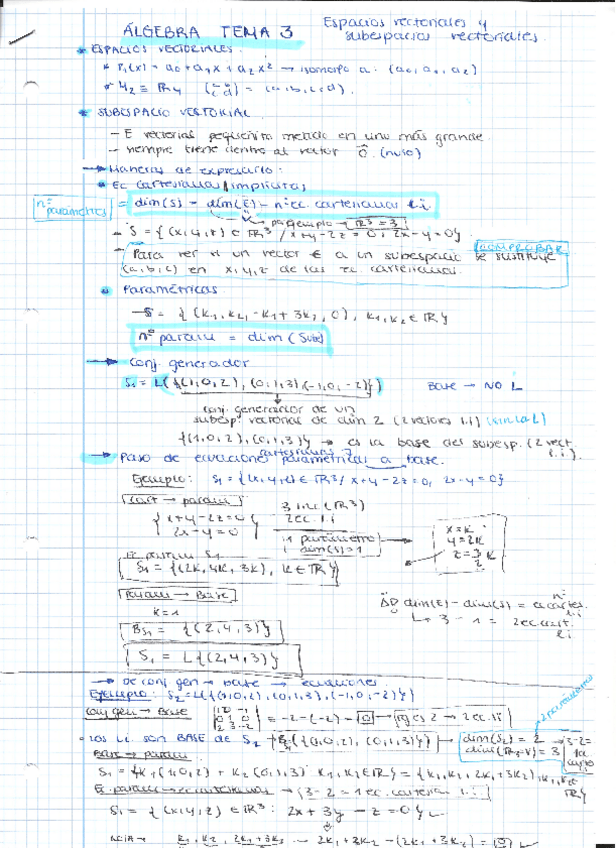 ÁLGEBRA TEMA 3 Espacios vectoriales y subespacios vectoriales.
* ESPACIOS VECTORIALES:
* P₂(x) = a₀ + a₁x + a₂x² → isomorfo a: (a₀, a₁, a₂)
≅ ℝ₄ (a b c d) = (a, b, c, d).
* SUBESPACIO VECTORIAL
- E vectorial pequeñito metido en uno más grande
- siempre tiene dentro al vector 0⃗. (nulo)
→ Maneras de expresarlo:
* Ec cartesianas / implícitas
nº parámetros = dim(S) = dim(E) - nº ec. cartesianas l.i
por ejemplo ℝ³ = 3
- S = {(x, y, z) ∈ ℝ³ / x+y-2z = 0, 2x-y = 0}
COMPROBAR
- Para ver si un vector ∈ a un subespacio se sustituye
(a, b, c) en x, y, z de las ec. cartesianas.
* Paramétricas
- S = {(k₁, k₂, -k₁ + 3k₂, 0), k₁, k₂ ∈ ℝ}
nº param = dim (Sub)
→ Conj. generador
S₁ = L({(1,0,2), (0,1,3), (-1,0,-2)}) Base → NO L
conj. generador de un
subesp. vectorial de dim 2 (2 vectores l.i) (sin la L)
{(1,0,2), (0,1,3)} → es la base del subesp. (2 vect. l.i.)
cartesianas
→ Paso de ecuaciones paramétricas a base.
Ejemplo: S₁ = {(x,y,z) ∈ ℝ³ / x+y-2z = 0, 2x-y = 0}
Cart → param
{ x+y-2z = 0
2x-y = 0
2 ec. l.i
1 parámetro
dim(S) = 1
x = k
y = 2k
z = 3/2 k
S₁ = {(2k, 4k, 3k), k ∈ ℝ}
Param → Base
k = 1
dim(E) - dim(S) = ec cartes. l.i
3 - 1 = 2
BS₁ = {(2, 4, 3)}
S₁ = L{(2, 4, 3)}
→ De conj gen → base → ecuaciones
Ejemplo: S₂ = L{(1,0,2), (0,1,3), (-1,0,-2)}
Conj gen → Base = -2-(-2) = 0 → rg es 2 → 2 ec. l.i
2 parámetros
= los li son BASE de S₂ {(1,0,2), (0,1,3)} → dim(S₂) = 2
3-2 =
Base → param
S₁ = {k₁(1,0,2) + k₂(0,1,3) k₁, k₂ ∈ ℝ} = {k₁, k₂, 2k₁+3k₂), k₁, k₂ ∈ ℝ}
(3-2 = 1 ec. cartesiana l.i.)
S₁ = {(x,y,z) ∈ ℝ³: 2x + 3y - z = 0}
k₁, k₂, 2k₁+3k₂ → 2k₁+3k₂ - (2k₁+3k₂) = 0